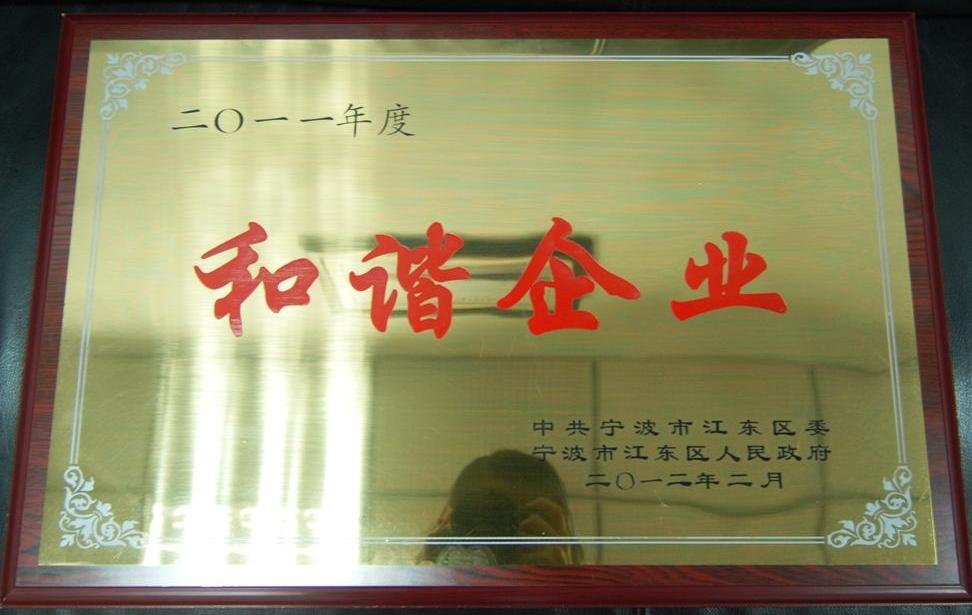 二〇一一年度
和谐企业
中共宁波市江东区委
宁波市江东区人民政府
二〇一二年二月